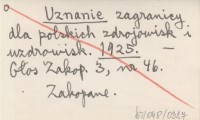 Uznanie zagranicy
dla polskich zdrojowisk i
uzdrowisk. 1925. —
Głos Zakop. 3, nr 46.
Zakopane.